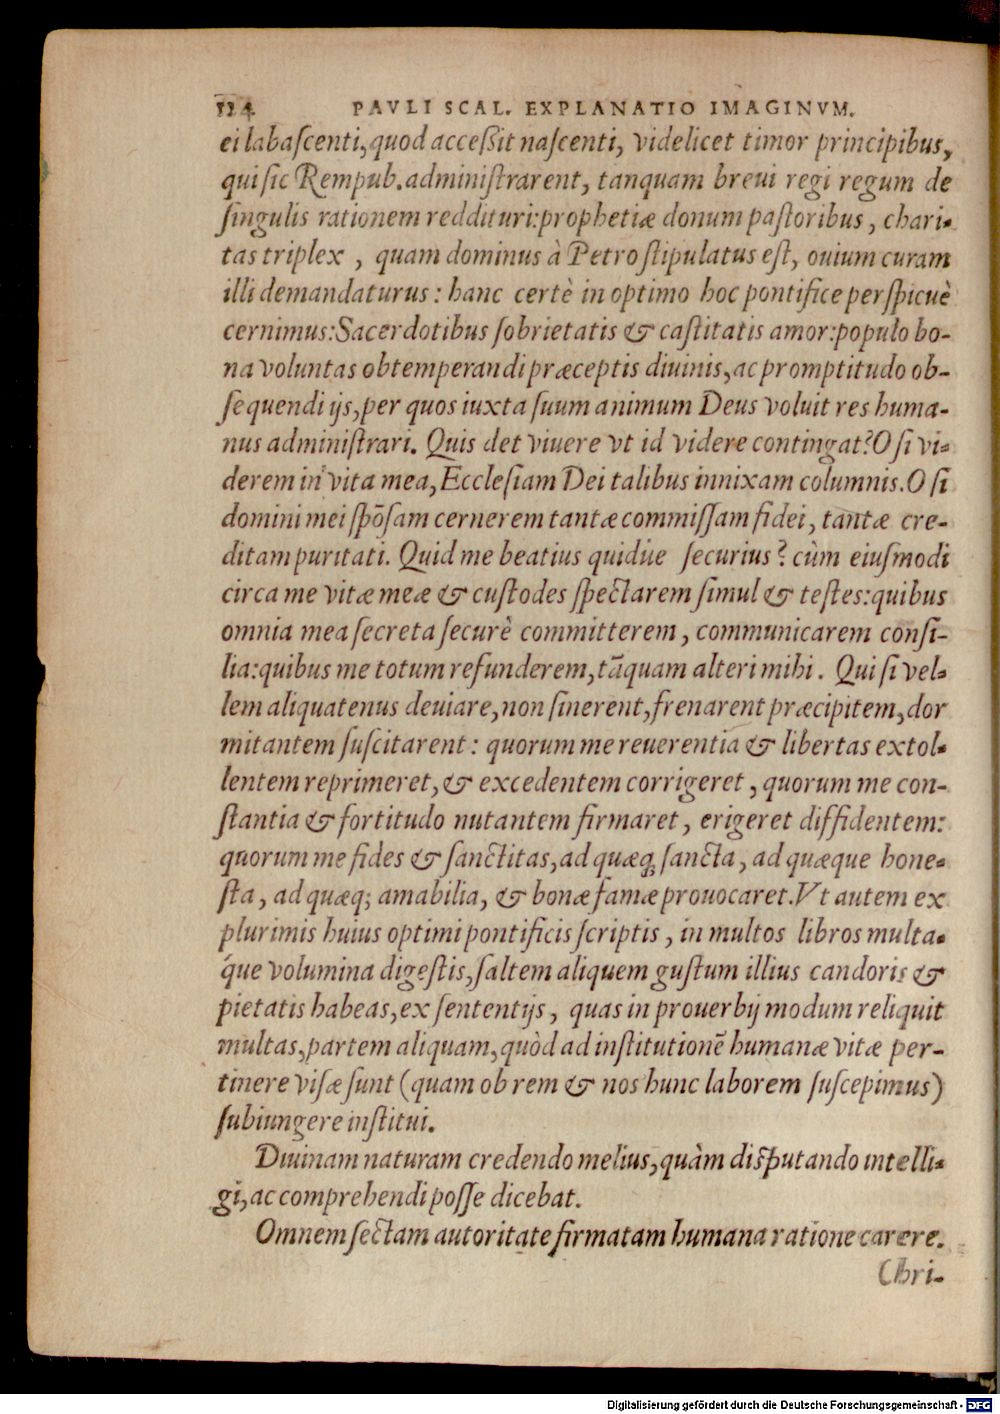 124 PAVLI SCAL. EXPLANATIO IMAGINVM.
ei labaſcenti, quod acceßit naſcenti, videlicet timor principibus,
qui ſic Rempub. adminiſtrarent, tanquam breui regi regum de
ſingulis rationem reddituri: prophetiæ donum paſtoribus, chari-
tas triplex, quam dominus à Petro ſtipulatus eſt, ouium curam
illi demandaturus: hanc certè in optimo hoc pontifice perſpicuè
cernimus: Sacerdotibus ſobrietatis & caſtitatis amor: populo bo-
na voluntas obtemperandi præceptis diuinis, ac promptitudo ob-
ſequendi ijs, per quos iuxta ſuum animum Deus voluit res huma-
nus adminiſtrari. Quis det viuere vt id videre contingat? O ſi vi-
derem in vita mea, Eccleſiam Dei talibus innixam columnis. O ſi
domini mei ſpõſam cernerem tantæ commiſſam fidei, tantæ cre-
ditam puritati. Quid me beatius quidúe ſecurius? cùm eiuſmodi
circa me vitæ meæ & cuſtodes ſpectarem ſimul & teſtes: quibus
omnia mea ſecreta ſecurè committerem, communicarem conſi-
lia: quibus me totum refunderem, tãquam alteri mihi. Qui ſi vel-
lem aliquatenus deuiare, non ſinerent, frenarent præcipitem, dor
mitantem ſuſcitarent: quorum me reuerentia & libertas extol-
lentem reprimeret, & excedentem corrigeret, quorum me con-
ſtantia & fortitudo nutantem firmaret, erigeret diffidentem:
quorum me fides & ſanctitas, ad quæq; ſancta, ad quæque hone-
ſta, ad quæq; amabilia, & bonæ famæ prouocaret. Vt autem ex
plurimis huius optimi pontificis ſcriptis, in multos libros multa-
q́ue volumina digeſtis, ſaltem aliquem guſtum illius candoris &
pietatis habeas, ex ſententijs, quas in prouerbij modum reliquit
multas, partem aliquam, quòd ad inſtitutionẽ humanæ vitæ per-
tinere viſæ ſunt (quam ob rem & nos hunc laborem ſuſcepimus)
ſubiungere inſtitui.
Diuinam naturam credendo melius, quàm diſputando intelli-
gi, ac comprehendi poſſe dicebat.
Omnem ſectam autoritate firmatam humana ratione carere.
Chri-
Digitalisierung gefördert durch die Deutsche Forschungsgemeinschaft - DFG